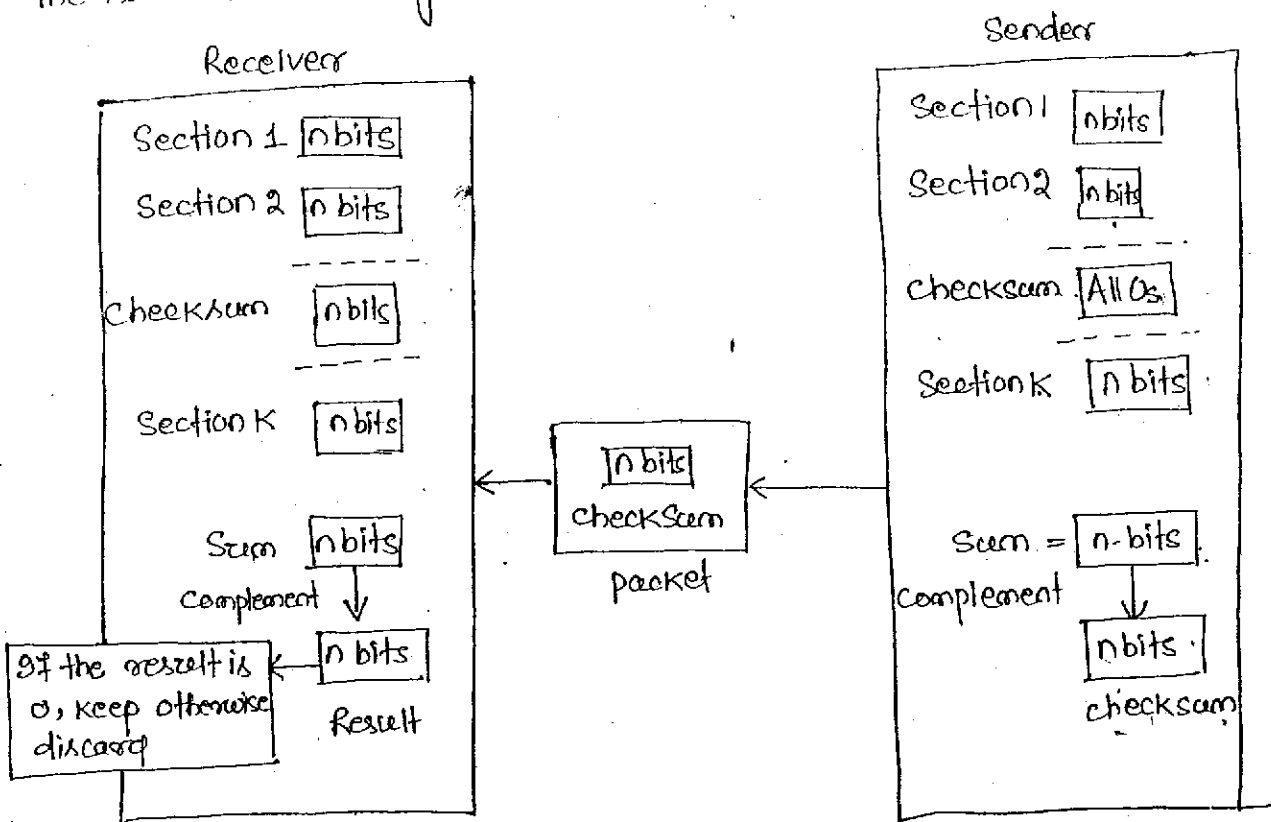 Receiver
Section 1 n bits
Section 2 n bits
checksum n bits
Section K n bits
Sum n bits
complement
n bits
Result
If the result is
0, keep otherwise
discard
n bits
checksum
packet
Sender
Section 1 n bits
Section 2 n bits
checksum All 0s
Section K n bits
Sum = n-bits
complement
n bits
checksum